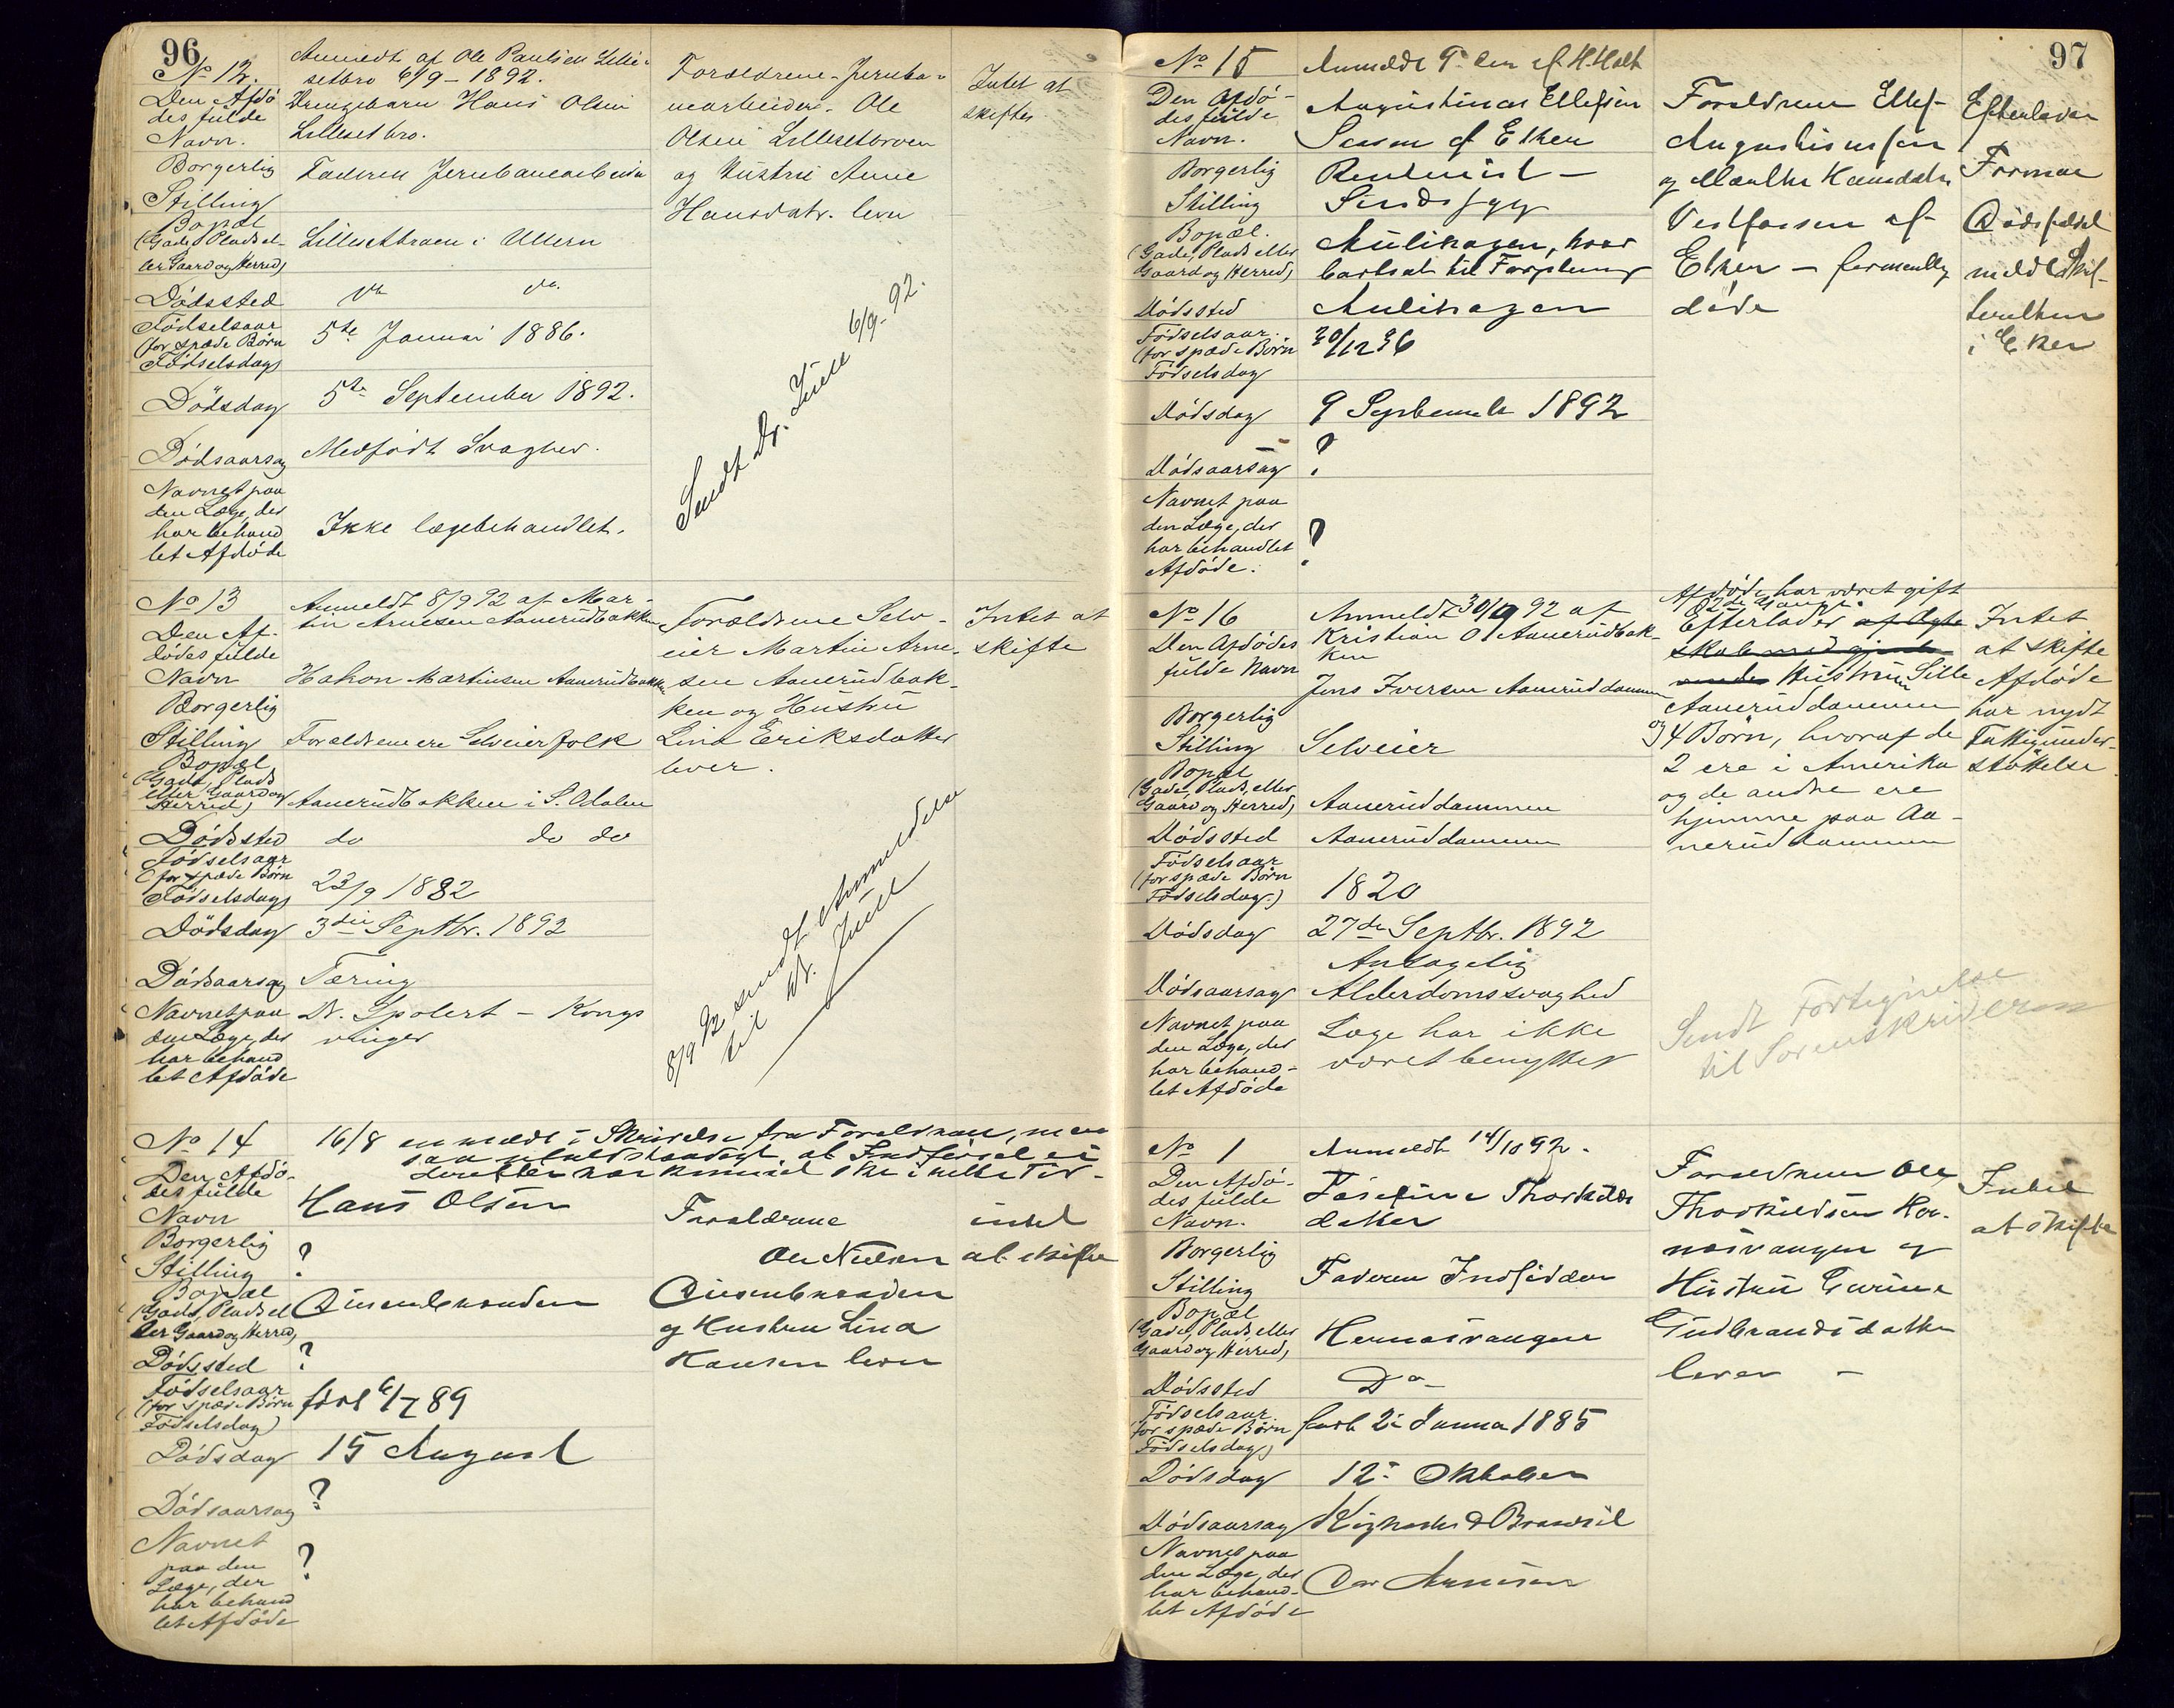 96
No 12.
Anmeldt af Ole Paulsen Lille-
setbro 6/9 - 1892.
Den Afdø-
des fulde
Navn.
Drengebarn Hans Olsen
Lillesetbro.
Borgerlig
Stilling
Faderen Jernbanearbeider
Bopæl
(Gade, Plads el-
ler Gaard og Herred)
Lillesetbroen i Ullern
Dødssted
do do.
Fødselsaar
(for spæde Børn
Fødselsdag)
5te Januar 1886.
Dødsdag
5te September 1892.
Dødsaarsag
Medfødt Svaghed.
Navnet paa
den Læge, der
har behand
let Afdøde
Ikke lægebehandlet.
Forældrene - Jernba-
nearbeider. Ole
Olsen Lillesetbroen
og Hustru Anne
Hansdatr. lever
Intet at
skifte
Sendt Dr. Juell 6/9. 92.
No 13
Anmeldt 8/9 92 af Mar-
tin Arnesen Aanerudbakken
Den Af-
dødes fulde
Navn
Hakon Martinsen Aanerudbakken
Borgerlig
Stilling
Forældrene ere Selveierfolk
Bopæl
(Gade, Plads
eller Gaard og
Herred)
Aanerudbakken i S. Odalen
Dødssted
do do do
Fødselsaar
(for spæde Børn
Fødselsdag)
23/9 1882
Dødsdag
3die Septbr. 1892
Dødsaarsag
Tæring
Navnet paa
den Læge, der
har behand
let Afdøde
Dr. - Kongs
vinger
Forældrene Selv-
eier Martin Arne-
sen Aanerudbak-
ken og Hustru
Lina Eriksdatter
lever.
Intet at
skifte
8/9 92 sendt Anmeldelse
til Dr. Juell
No 14
16/8 anmeldt i Skrivelse fra Forældrene, men
saa ufuldstændigt, at Indførsel ei
derefter har kunnet ske i rette Tid -
Den Afdø-
des fulde
Navn
Hans Olsen
Borgerlig
Stilling
?
Bopæl
(Gade, Plads el
ler Gaard og Herred)
Dødssted
?
Fødselsaar
(for spæde Børn
Fødselsdag)
født 6/7 89
Dødsdag
15 August
Dødsaarsag
?
Navnet
paa den
Læge, der
har behand
let Afdøde
?
Forældrene
Ole Nielsen
og Hustru Lina
Hansen lever
intet
at skifte
97
No 15
Anmeldt af H. Holt
Den Afdø-
des fulde
Navn.
Augustinus Ellefsen
af Eker
Borgerlig
Stilling
Sindssyg
Bopæl.
(Gade, Plads eller
Gaard og Herred)
Aulihagen, hvor
bortsat til Forpleining
Dødssted
Aulihagen
Fødselsaar.
(for spæde Børn
Fødselsdag
30/12 36
Dødsdag
9 September 1892
Dødsaarsag
?
Navnet paa
den Læge, der
har behandlet
Afdøde.
?
Forældrene Ellef
Augustinussen
og Marthe
Vestfossen af
Eker - formentlig
døde
Efterlader
Formue
Dødsfaldet
meldt Skif-
teretten
i Eker
No 16
Anmeldt 30/9 92 af
Kristian O Aanerudbak-
ken
Den Afdødes
fulde Navn
Jens Iversen Aaneruddammen
Borgerlig
Stilling
Selveier
Bopæl
(Gade, Plads, eller
Gaard og Herred)
Aaneruddammen
Dødssted
Aaneruddammen
Fødselsaar
(for spæde Børn
Fødselsdag.)
1820
Dødsdag
27de Septbr. 1892
Dødsaarsag
Antagelig
Alderdomssvaghed
Navnet paa
den Læge, der
har behand-
let Afdøde
Læge har ikke
været benyttet
Afdøde har været gift
2de Gange.
Efterlader af Ægte
skab med
Hustru Sille
Aaneruddammen
og 4 Børn, hvoraf de
2 ere i Amerika
og de andre ere
hjemme paa Aa-
neruddammen
Intet
at skifte
Afdøde
har nydt
Fattigunder-
støttelse
Sendt Fortegnelse
til Sorenskriveren
No 1
Anmeldt 14/10 92.
Den Afdø-
des fulde
Navn.
Josefine Thorkilds
datter
Borgerlig
Stilling
Faderen Indsidder
Bopæl
(Gade, Plads eller
Gaard og Herred)
Hernæsvangen
Dødssted
Do
Fødselsaar.
(for spæde Børn
Fødselsdag)
født 2 Januar 1885
Dødsdag
12 Oktober
Dødsaarsag
Kighoste & Bronchit
Navnet paa
den Læge, der
har behand-
let Afdøde
Forældrene Ole
Thorkildsen Her-
næsvangen og
Hustru Gurine
Gudbrandsdatter
lever -
Intet
at skifte